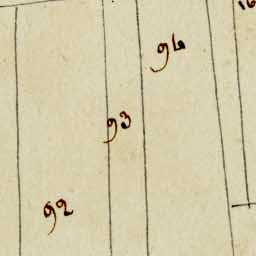 94
93
92